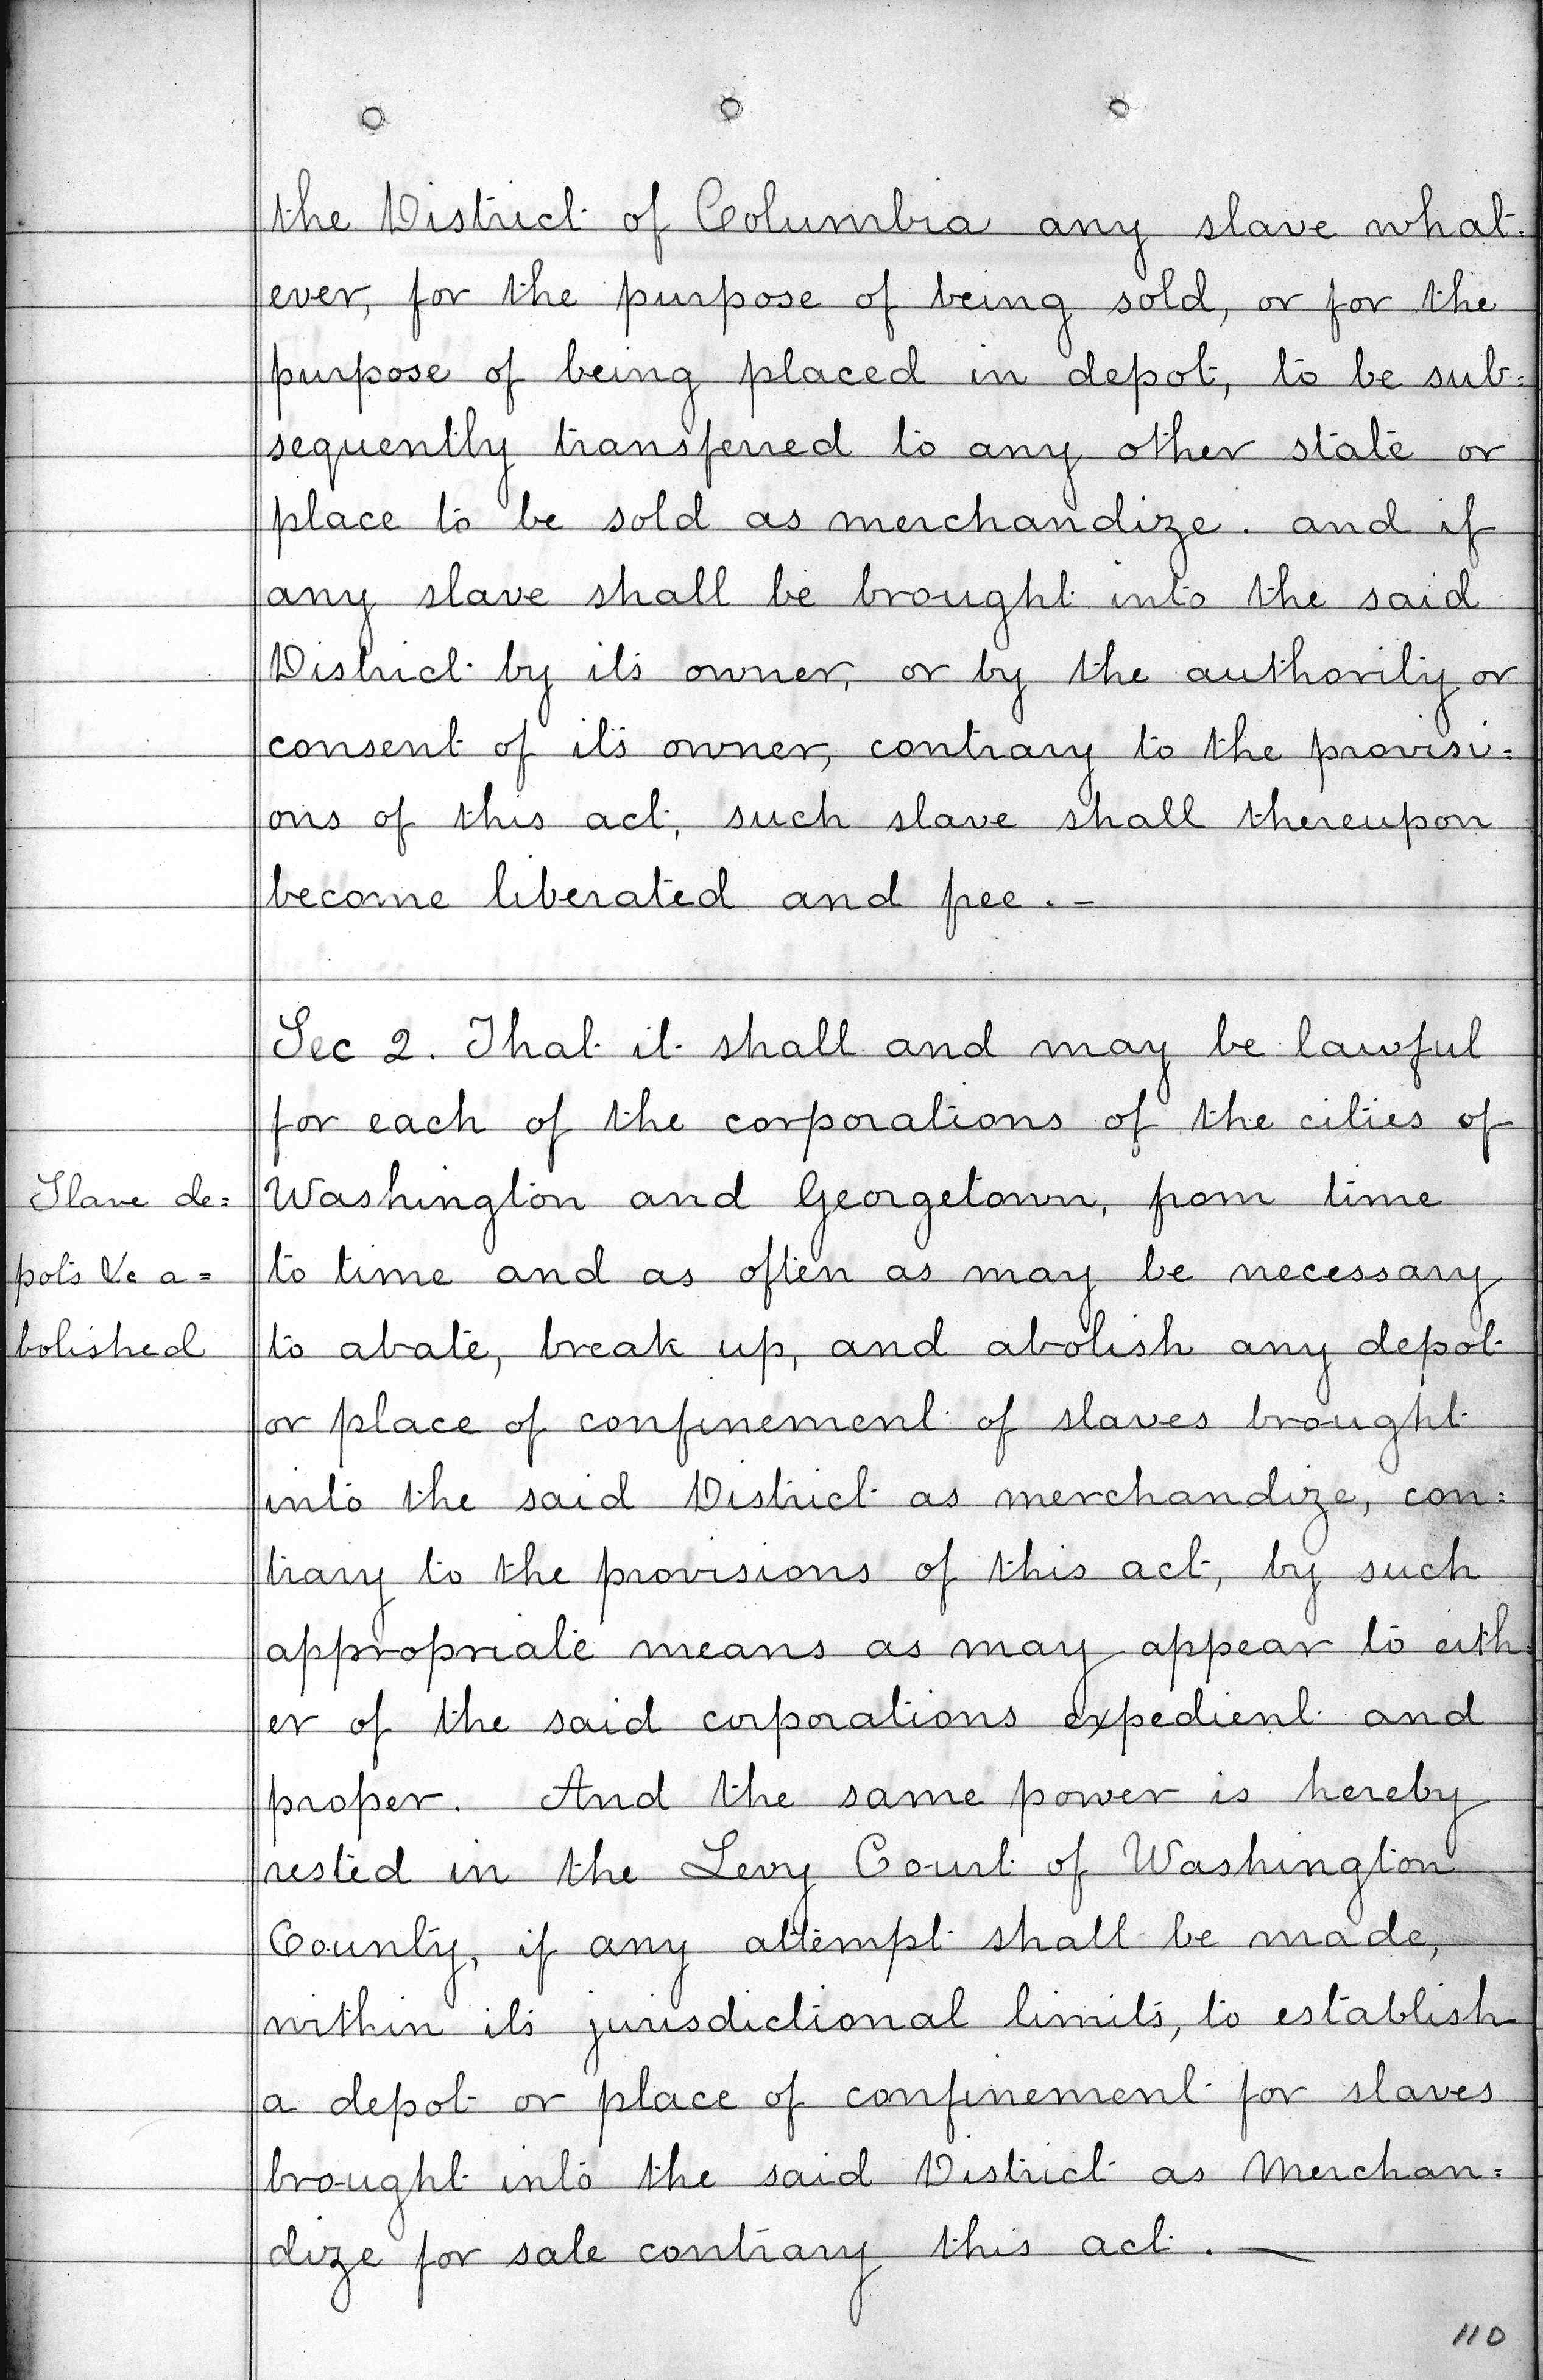 the District of Columbia any slave what-
ever, for the purpose of being sold, or for the
purpose of being placed in depot, to be sub=
sequently transferred to any other state or
place to be sold as merchandize. and if
any slave shall be brought into the said
District by its owner, or by the authority or
consent of its owner, contrary to the provisi=
ons of this act, such slave shall thereupon
become liberated and free. -
Sec 2. That it shall and may be lawful
for each of the corporations of the cities of
Slave de= Washington and Georgetown, from time
pots &c a= to time and as often as may be necessary
bolished to abate, break up, and abolish any depot
or place of confinement of slaves brought
into the said District as merchandize, con=
trary to the provisions of this act, by such
appropriate means as may appear to eith=
er of the said corporations expedient and
proper. And the same power is hereby
vested in the Levy Court of Washington
County, if any attempt shall be made,
within its jurisdictional limits, to establish
a depot or place of confinement for slaves
brought into the said District as Merchan=
dize for sale contrary this act. —
110